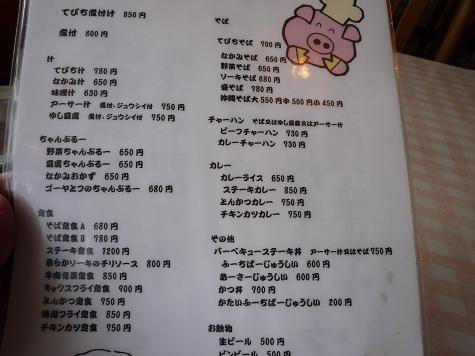 てびち煮付け 850円
煮付 800円
汁
てびち汁 780円
なかみ汁 650円
味噌汁 630円
アーサー汁 煮付、ジュウシイ付 750円
ゆし豆腐 煮付、ジュウシイ付 750円
ちゃんぷるー
野菜ちゃんぷるー 650円
豆腐ちゃんぷるー 650円
なかみおかず 650円
ゴーヤとつのちゃんぷるー 680円
定食
そば定食A 680円
そば定食B 780円
ステーキ定食 1200円
柔らかソーキのチリソース 800円
牛肉野菜定食 850円
ミックスフライ定食 900円
とんかつ定食 750円
フライ定食 850円
チキンカツ定食 750円
そば
てびちそば 700円
なかみそば 650円
野菜そば 650円
ソーキそば 680円
そば 780円
沖縄そば 大550円 中500円 小450円
チャーハン そば又はゆし豆腐又はアーサー汁
ビーフチャーハン 730円
カレーチャーハン 730円
カレー
カレーライス 650円
ステーキカレー 850円
とんかつカレー 750円
チキンカツカレー 750円
その他
バーベキューステーキ丼 アーサー汁又はそば 750円
ふーちばーじゅうしい 600円
あーさーじゅうしい 600円
かつ丼 700円
かたいふーちばーじゅうしい 200円
お飲物
生ビール 500円
ビンビール 500円